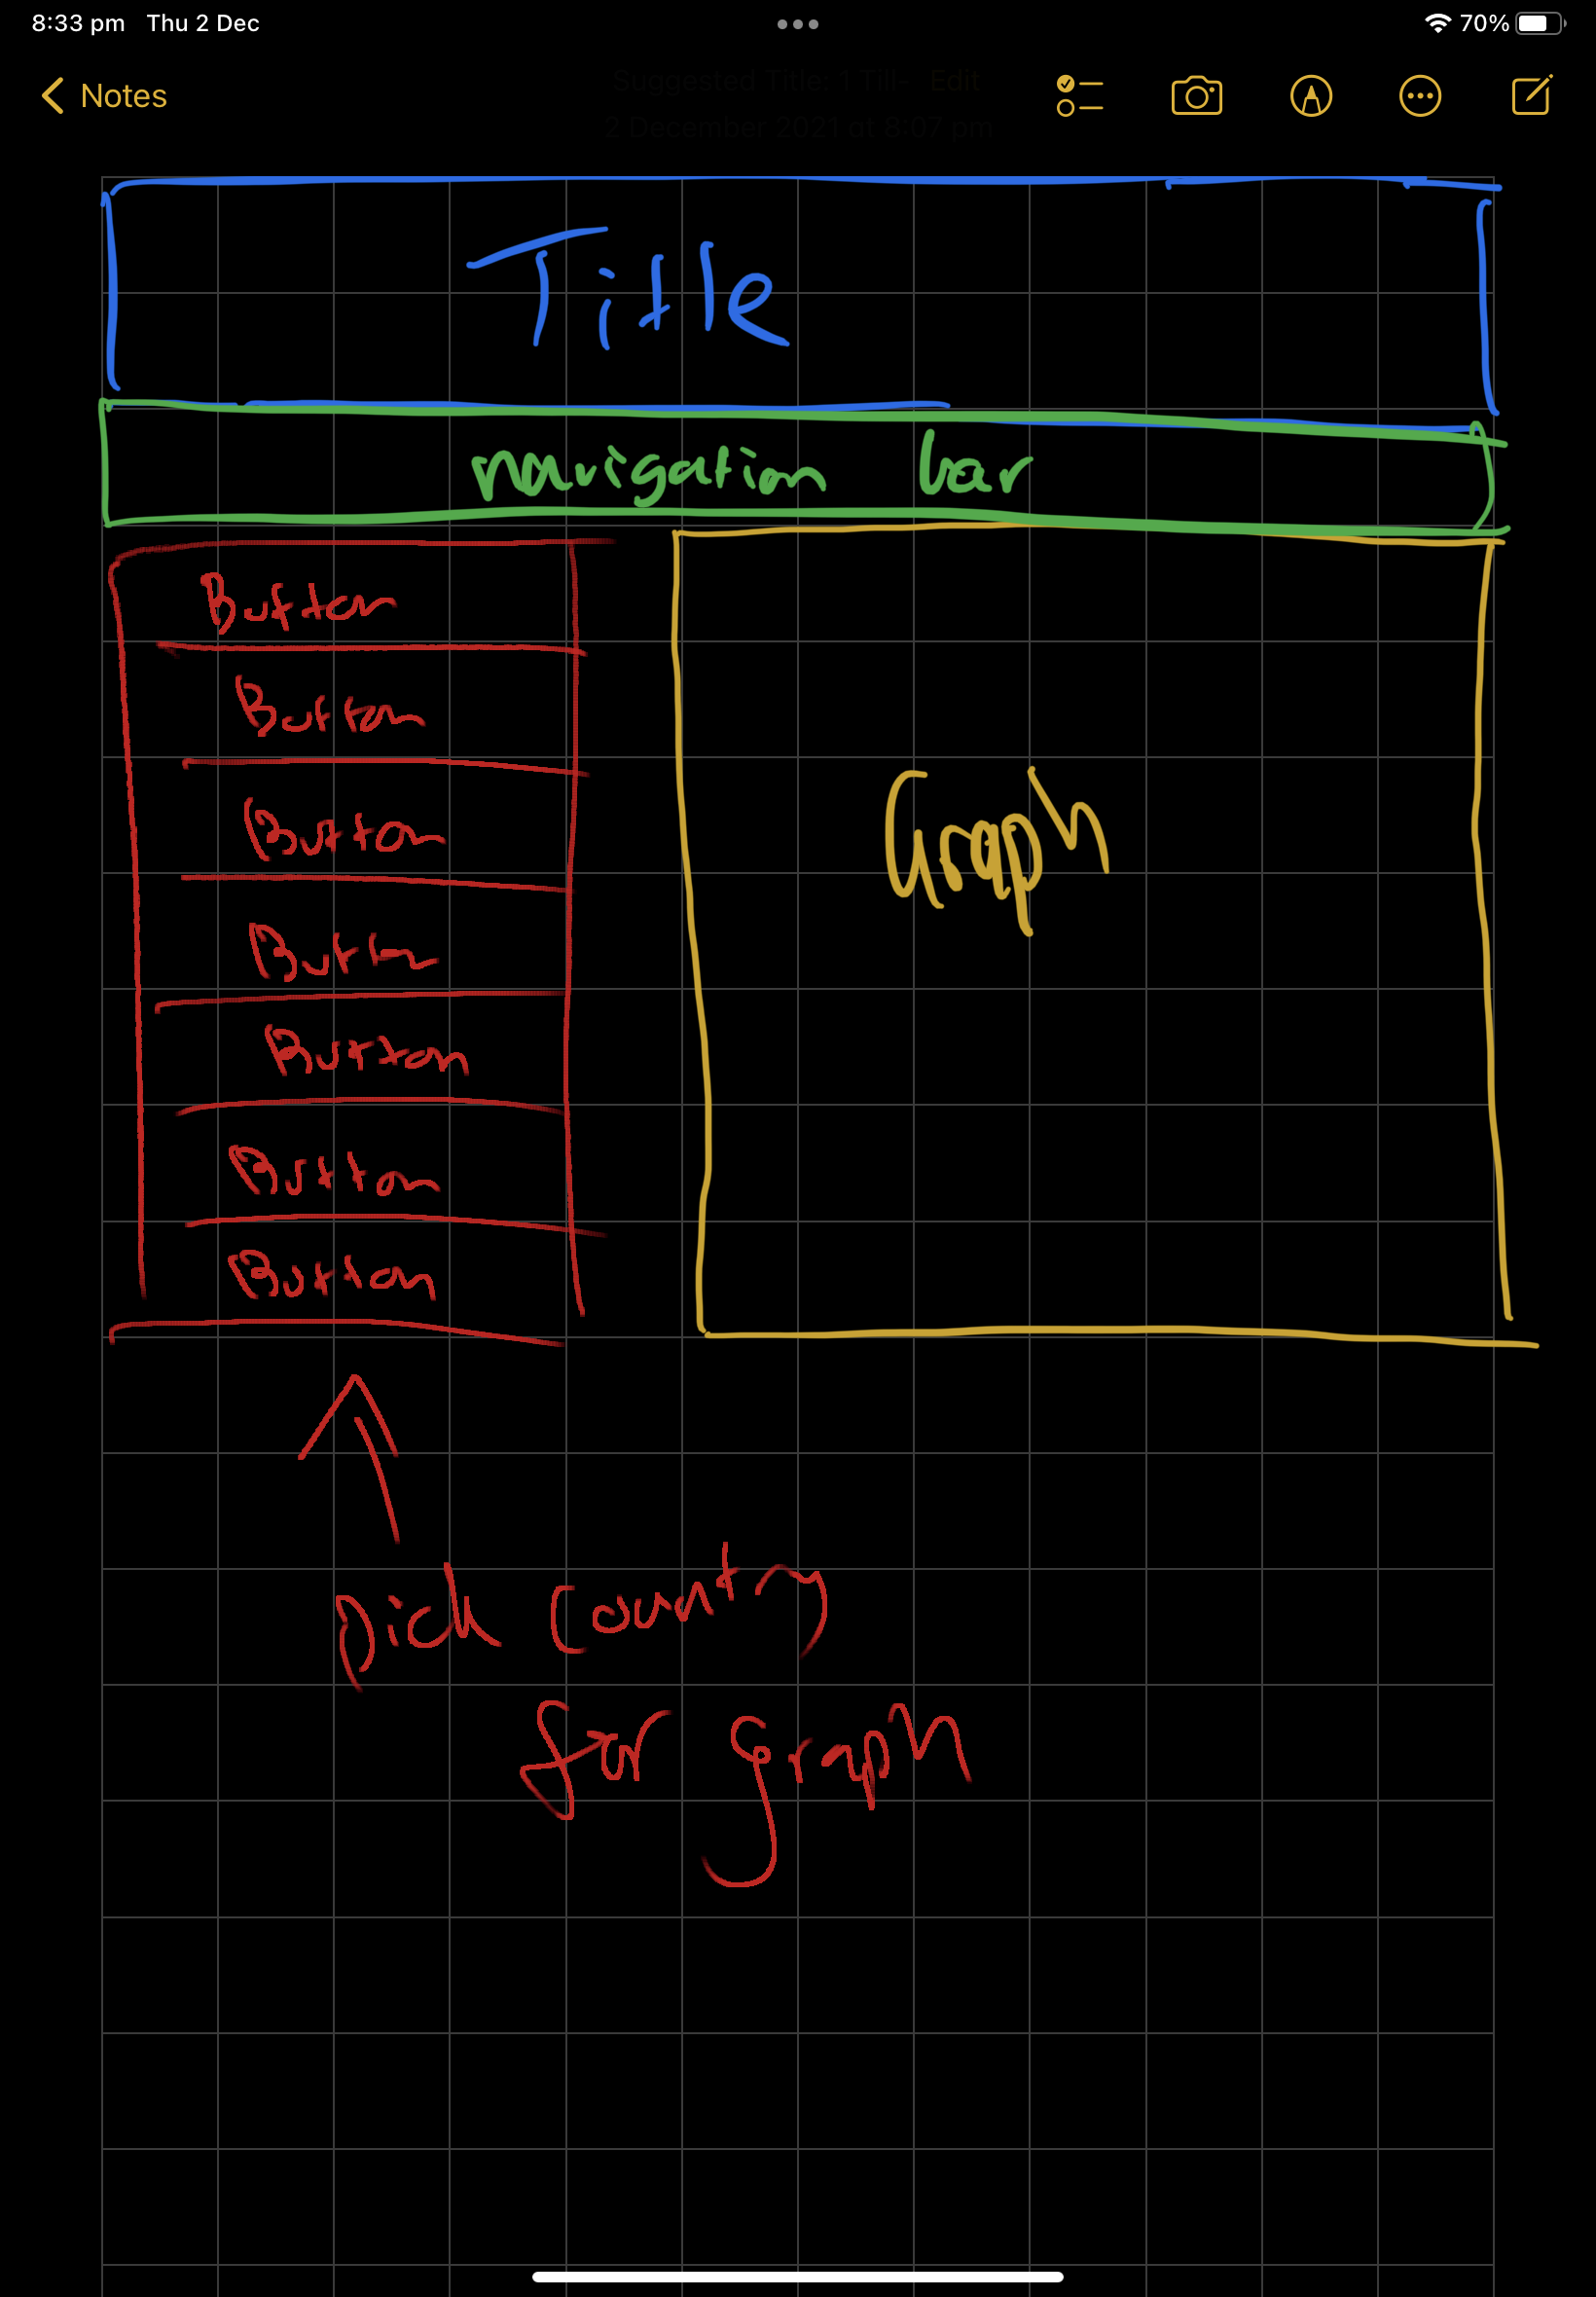 8:33 pm Thu 2 Dec 70%
Notes
Suggested Title: 1 Till- Edit
2 December 2021 at 8:07 pm
Title
navigation bar
Button
Button
Button
Button
Button
Button
Button
Graph
pick country
for graph